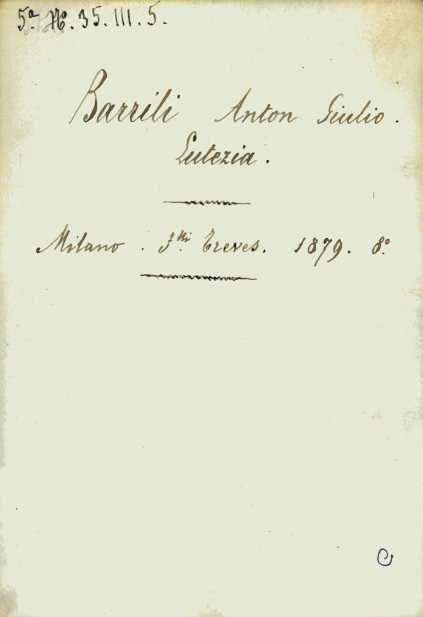 5ª Nº. 35. III. 5.
Barrili Anton Giulio.
Lutezia.
Milano. Flli Treves. 1879. 8º.
C